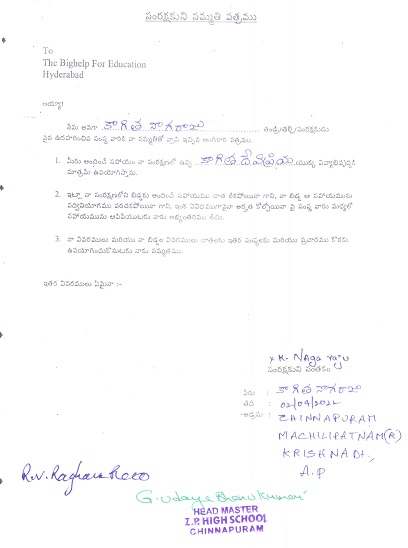 సంరక్షకుని సమ్మతి పత్రము
To
The Bighelp For Education
Hyderabad
అయ్యా!
నేను అనగా కాగిత నాగరాజు తండ్రి/తల్లి/సంరక్షకుడు
పైన ఉదహరించిన సంస్థ వారికి నా సమ్మతితో వ్రాసి ఇచ్చిన అంగీకార పత్రము.
1. మీరు అందించే సహాయం నా సంరక్షణలో ఉన్న కాగిత దేవిప్రియ యొక్క విద్యాభివృద్ధికి
మాత్రమే ఉపయోగిస్తాను.
2. ఇట్లా నా సంరక్షణలోని బిడ్డకు అందించే సహాయము చాత లేకపోయినా గాని, నా బిడ్డ ఆ సహాయమును
సద్వినియోగము పరచకపోయినా గాని, ఇంకే విధముగానైనా అర్హత కోల్పోయినా పై సంస్థ వారు మధ్యలో
సహాయమును ఆపివేయుటకు నాకు అభ్యంతరము లేదు.
3. నా వివరములు మరియు నా బిడ్డ వివరములు దాతలకు ఇతర సంస్థలకు మరియు ప్రచారము కొరకు
ఉపయోగించుకొనుటకు నాకు సమ్మతము.
ఇతర వివరములు ఏమైనా :-
x K. Naga raju
సంరక్షకుని సంతకం
పేరు : కాగిత నాగరాజు
తేది : 02/09/2022
అడ్రసు : CHINNAPURAM
MACHILIPATNAM(R)
KRISHNA Dt,
A.P
R.V. Raghava Rao
G. Udaya Bhanu Kumari
HEAD MASTER
Z.P. HIGH SCHOOL
CHINNAPURAM